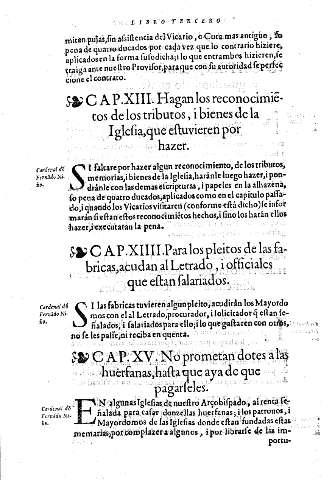 LIBRO TERCERO
miten pujas, sin asistencia del Vicario, o Cura mas antiguo, so
pena de quatro ducados por cada vez que lo contrario hiziere,
aplicados en la forma susodicha; i lo que entrambos hizieren, se
traiga ante nuestro Provisor, para que con su autoridad se perfec
cione el contrato.
CAP. XIII. Hagan los reconocimiẽ
tos de los tributos, i bienes de la
Iglesia, que estuvieren por
hazer.
Cardenal dõ
Fernãdo Ni-
ño.
SI faltare por hazer algun reconocimiento, de los tributos,
memorias, i bienes de la Iglesia, haràn le luego hazer, i pon-
dràn le con las demas escripturas, i papeles en la alhazena,
so pena de quatro ducados, aplicados como en el capitulo passa-
do, i quando los Vicarios visitaren (conforme està dicho) se infor
marán si estan estos reconocimiẽtos hechos, i sino los harán ellos
hazer, i executaràn la pena.
CAP. XIIII. Para los pleitos de las fa-
bricas, acudan al Letrado, i officiales
que estan salariados.
Cardenal dõ
Fernãdo Ni-
ño.
SI las fabricas tuvieren algun pleito, acudiràn los Mayordo
mos con el al Letrado, procurador, i solicitador q̃ estàn se-
ñalados, i salariados para ello; i lo que gastaren con otros,
no se les passe, ni reciba en quenta.
CAP. XV. No prometan dotes a las
huerfanas, hasta que aya de que
pagarseles.
Cardenal dõ
Fernãdo Ni-
ño.
EN algunas Iglesias de nuestro Arçobispado, ai renta se
ñalada para casar donzellas huerfanas; i los patronos, i
Mayordomos de las Iglesias donde estan fundadas estas
memorias, por complazer a algunos, i por librarse de las im-
portu-